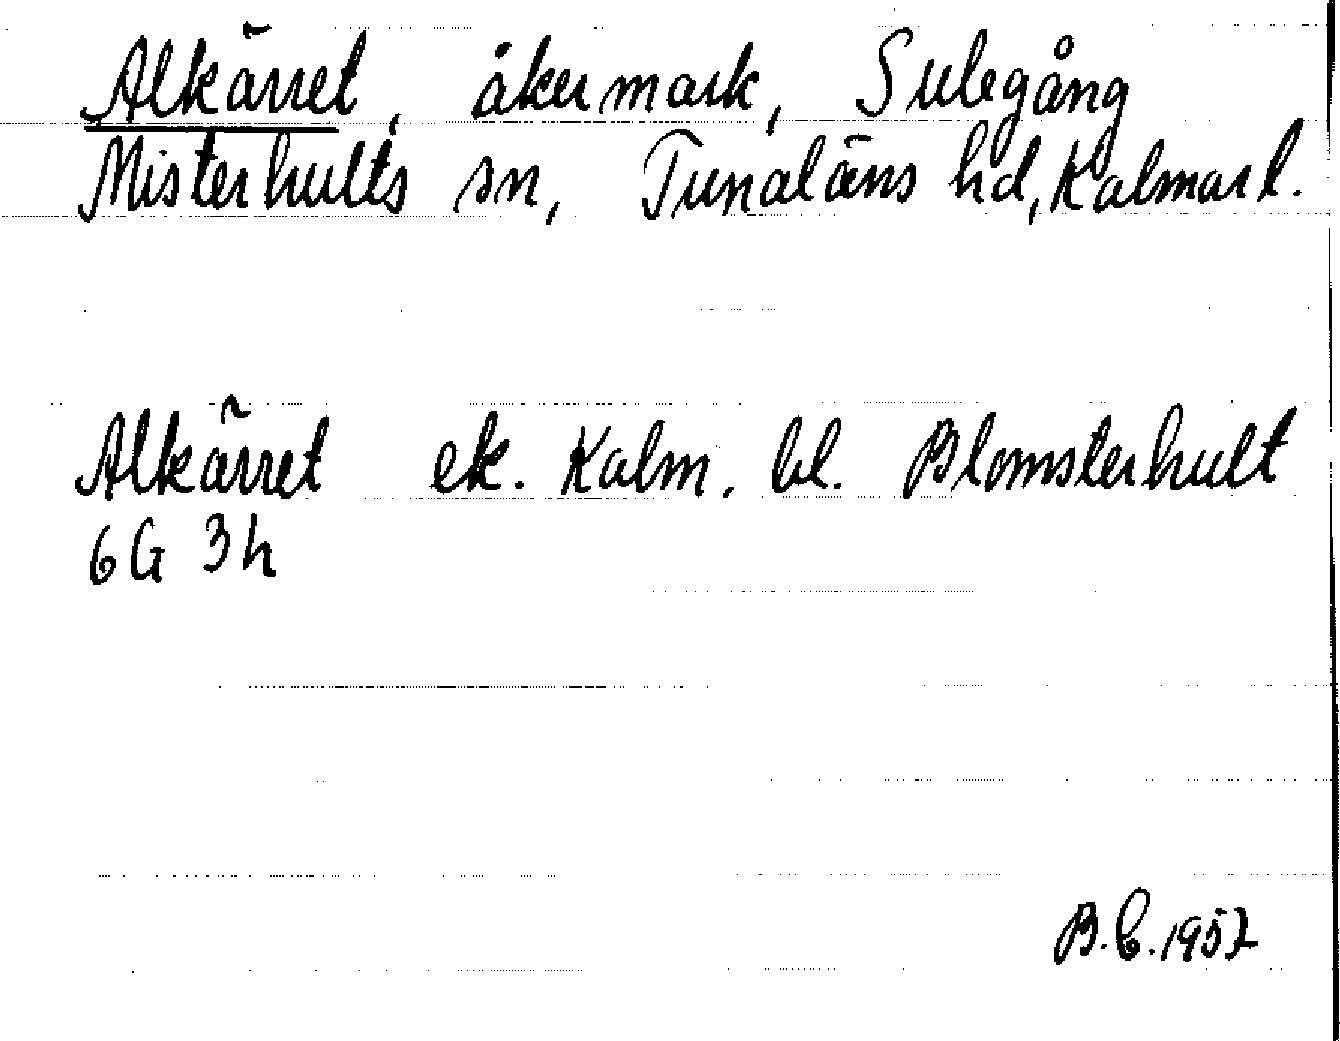 Alkärret, åkermark, Sulegång
Misterhults sn, Tunaläns hd, Kalmar l.
Alkärret ek. Kalm. bl. Blomsterhult
6G 3h
B.C. 1957